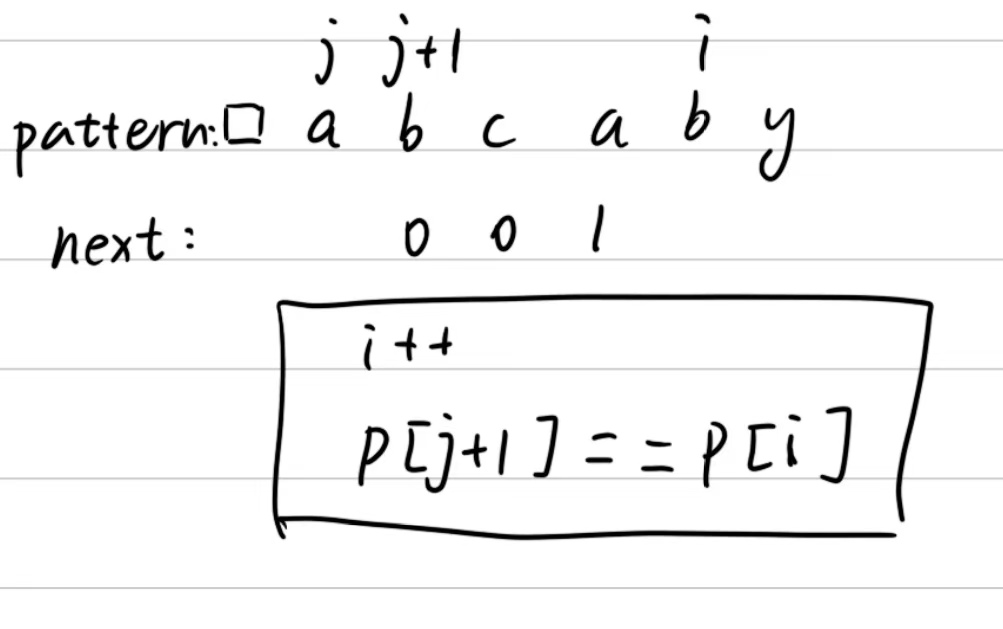 j j+1 i
pattern:□ a b c a b y
next: 0 0 1
i++
P[j+1]==P[i]